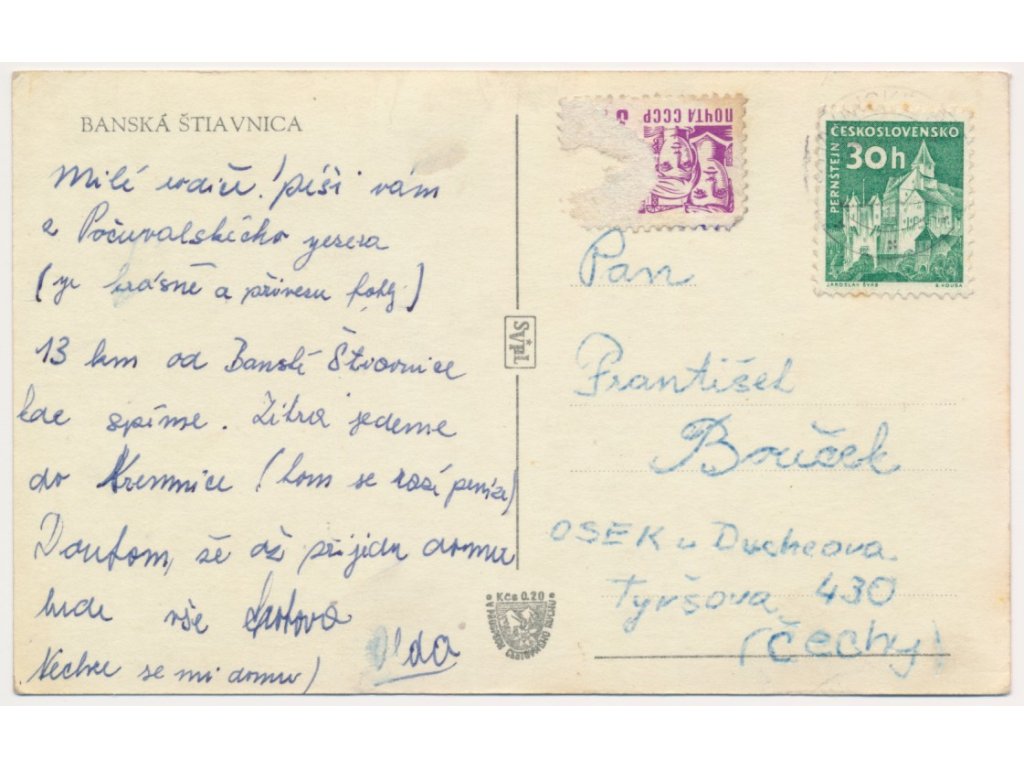 BANSKÁ ŠTIAVNICA
Milí rodiče! píši vám
z Počúvalského jezera
(je krásně a přivezu fotky)
13 km od Banské Štiavnice
kde spíme. Zítra jedeme
do Kremnice (tam se razí peníze)
Doufam, že až přijedu domu
bude vše
Nechce se mi domu)
Olda
Sýpl
Kčs 0.20
ПОЧТА СССР
ČESKOSLOVENSKO
30h
PERNŠTEJN
JAROSLAV ŠVÁB
Pan
František
Bouček
OSEK u Duchcova
Tyršova 430
(Čechy)